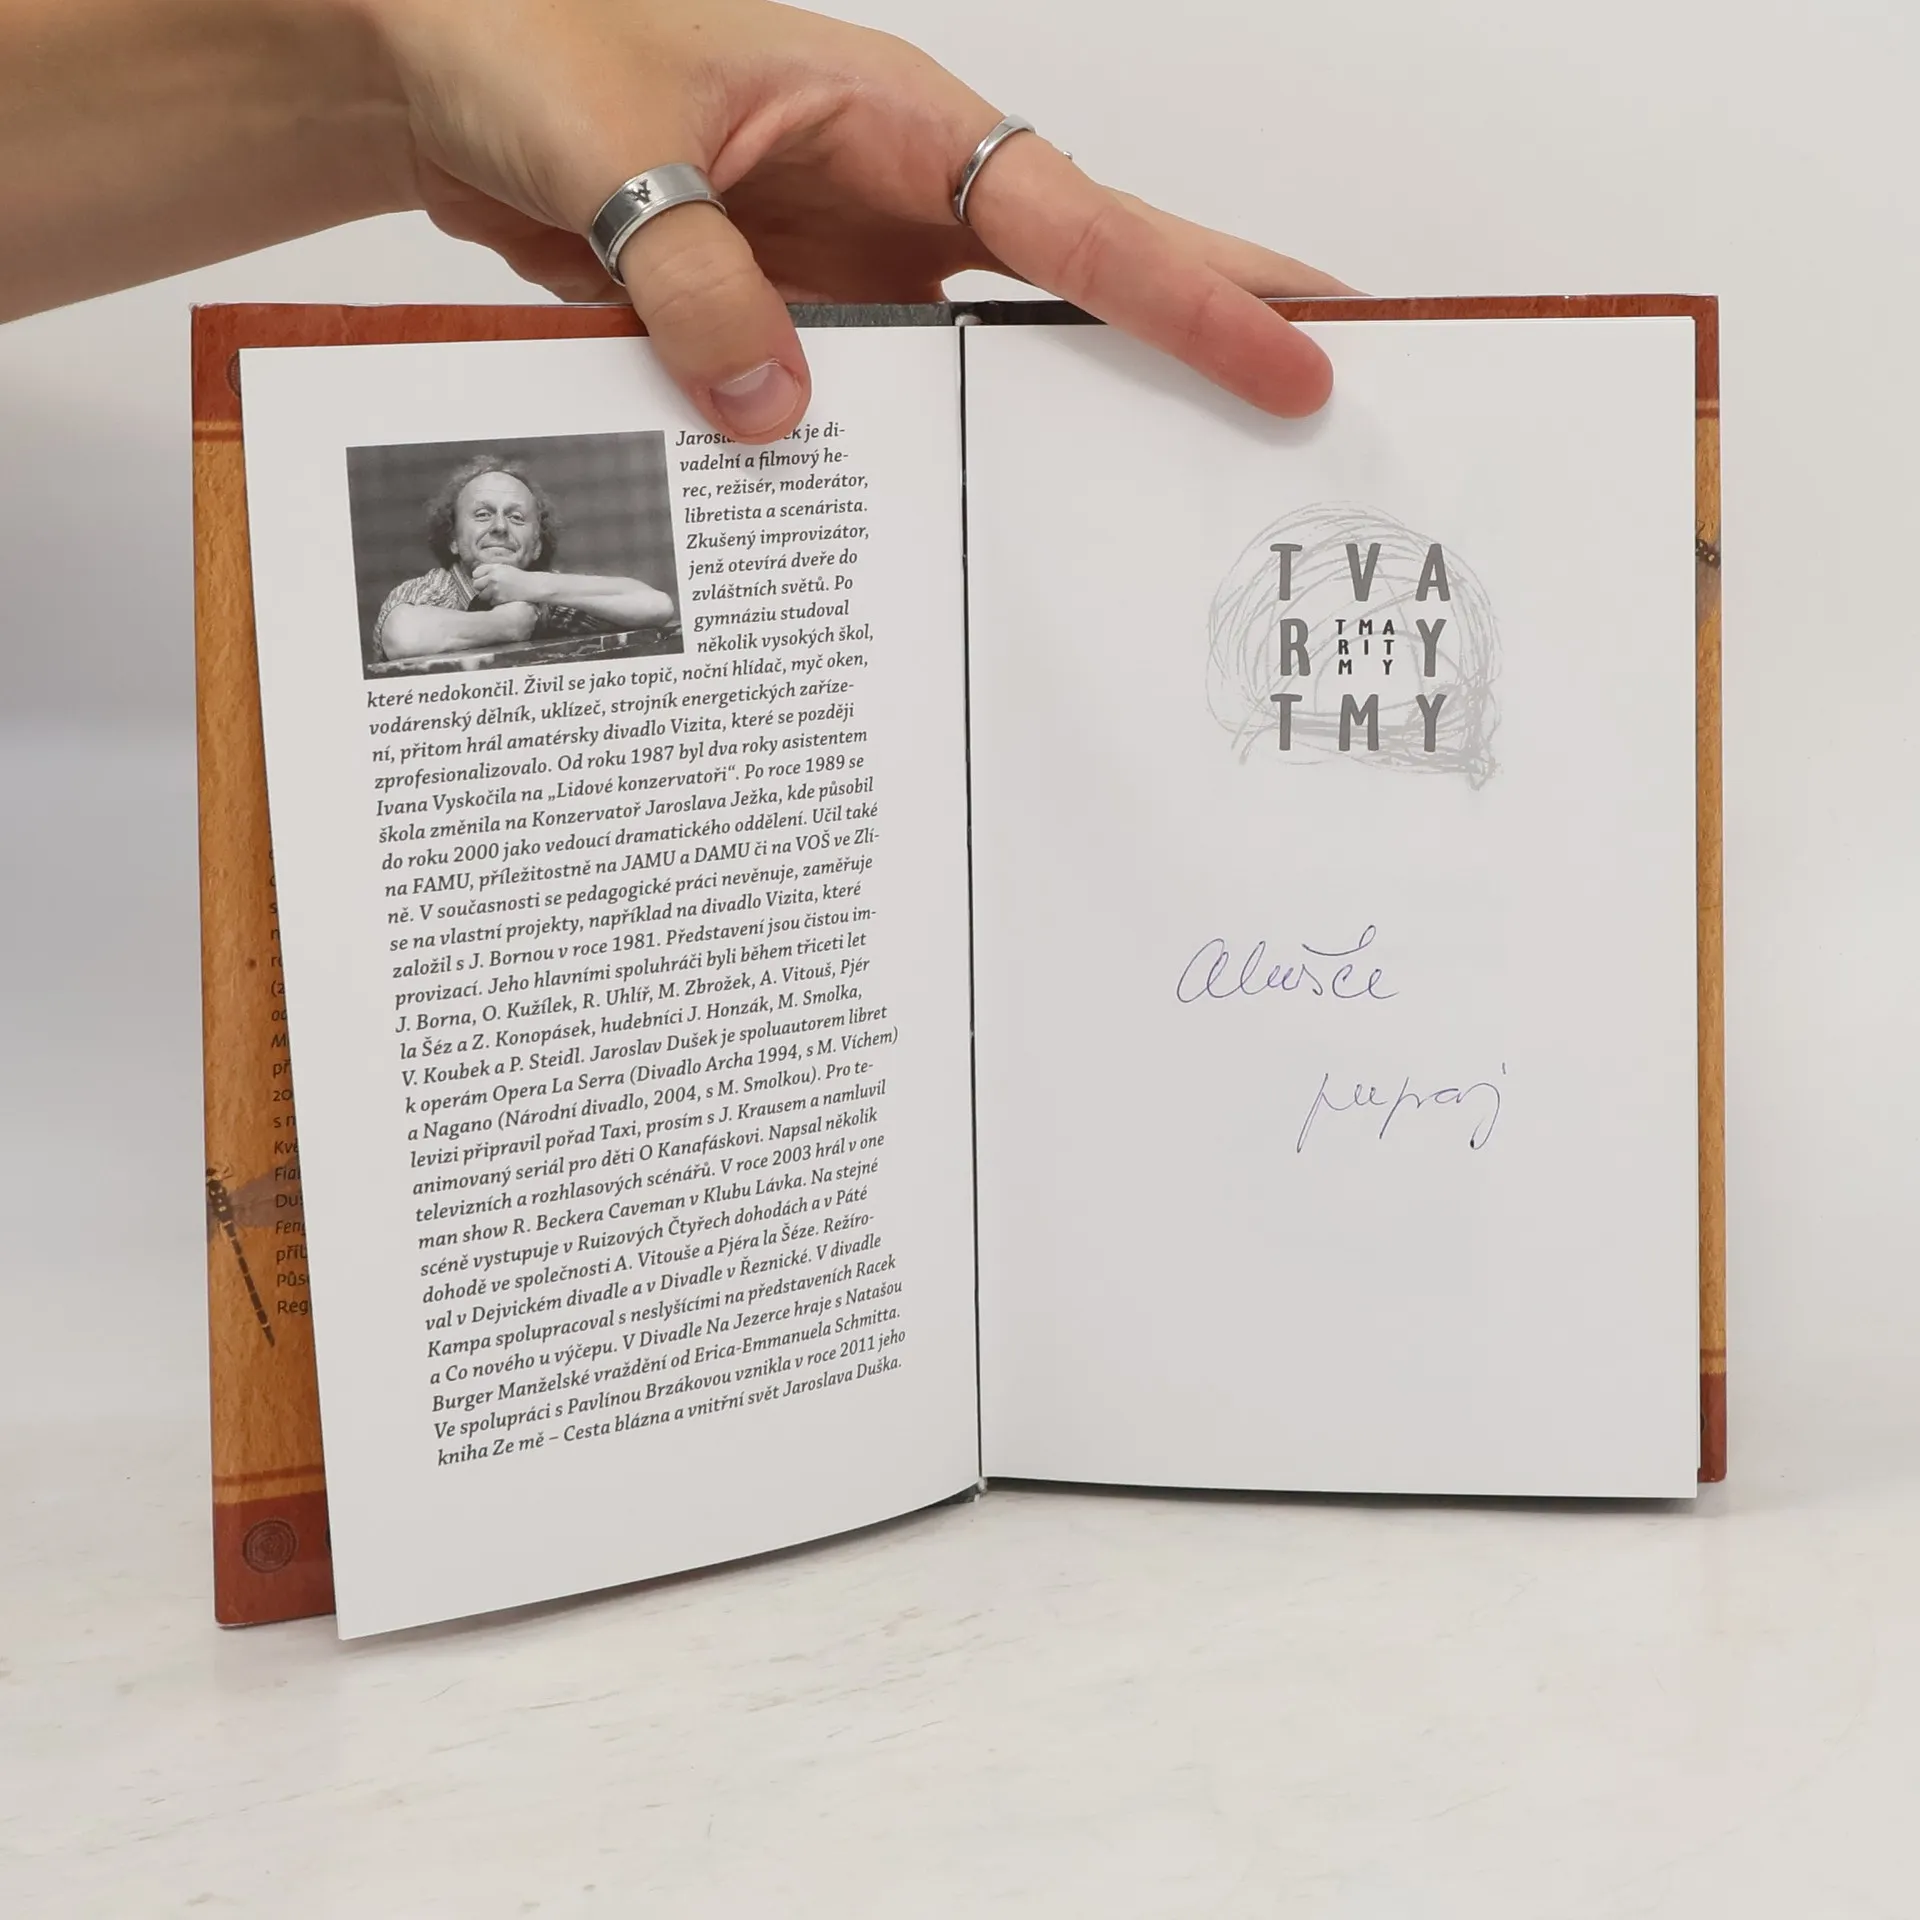 je di-
vadelní a filmový he-
rec, režisér, moderátor,
libretista a scenárista.
Zkušený improvizátor,
jenž otevírá dveře do
zvláštních světů. Po
gymnáziu studoval
několik vysokých škol,
které nedokončil. Živil se jako topič, noční hlídač, myč oken,
vodárenský dělník, uklízeč, strojník energetických zaříze-
ní, přitom hrál amatérsky divadlo Vizita, které se později
zprofesionalizovalo. Od roku 1987 byl dva roky asistentem
Ivana Vyskočila na „Lidové konzervatoři“. Po roce 1989 se
škola změnila na Konzervatoř Jaroslava Ježka, kde působil
do roku 2000 jako vedoucí dramatického oddělení. Učil také
na FAMU, příležitostně na JAMU a DAMU či na VOŠ ve Zlí-
ně. V současnosti se pedagogické práci nevěnuje, zaměřuje
se na vlastní projekty, například na divadlo Vizita, které
založil s J. Bornou v roce 1981. Představení jsou čistou im-
provizací. Jeho hlavními spoluhráči byli během třiceti let
J. Borna, O. Kužílek, R. Uhlíř, M. Zbrožek, A. Vitouš, Pjér
la Šéz a Z. Konopásek, hudebníci J. Honzák, M. Smolka,
V. Koubek a P. Steidl. Jaroslav Dušek je spoluautorem libret
k operám Opera La Serra (Divadlo Archa 1994, s M. Víchem)
a Nagano (Národní divadlo, 2004, s M. Smolkou). Pro te-
levizi připravil pořad Taxi, prosím s J. Krausem a namluvil
animovaný seriál pro děti O Kanafáskovi. Napsal několik
televizních a rozhlasových scénářů. V roce 2003 hrál v one
man show R. Beckera Caveman v Klubu Lávka. Na stejné
scéně vystupuje v Ruizových Čtyřech dohodách a v Páté
dohodě ve společnosti A. Vitouše a Pjéra la Šéze. Režíro-
val v Dejvickém divadle a v Divadle v Řeznické. V divadle
Kampa spolupracoval s neslyšícími na představeních Racek
a Co nového u výčepu. V Divadle Na Jezerce hraje s Natašou
Burger Manželské vraždění od Erica-Emmanuela Schmitta.
Ve spolupráci s Pavlínou Brzákovou vznikla v roce 2011 jeho
kniha Ze mě – Cesta blázna a vnitřní svět Jaroslava Duška.
T V A
R Y
T M Y
T M A
R I T
M Y
Alušce